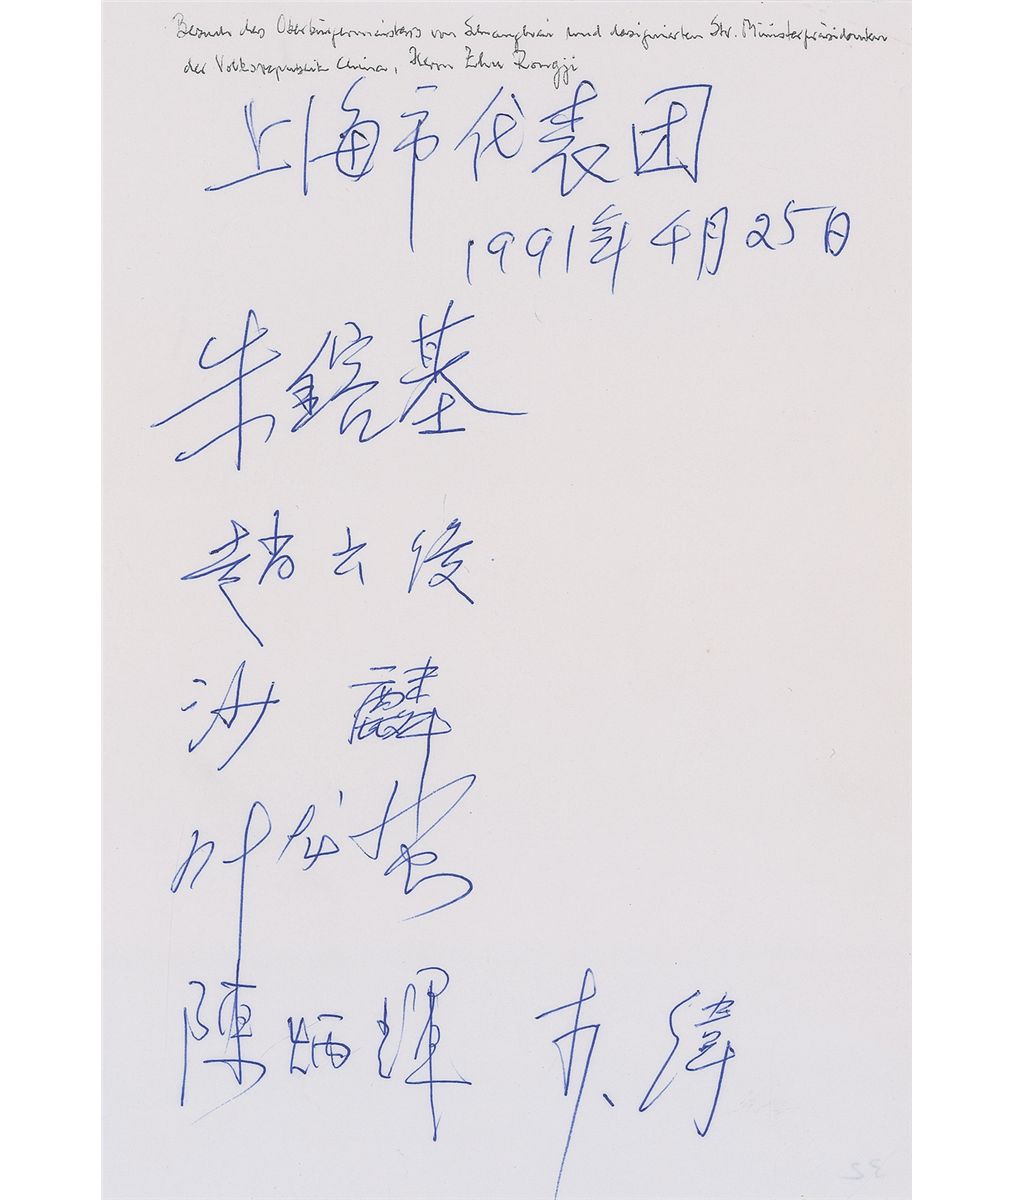 Besuch des Oberbürgermeisters von Schanghai und designierten Stv. Ministerpräsidenten
der Volksrepublik China, Herrn Zhu Rongji
上海市代表团
1991年4月25日
朱鎔基
趙云俊
沙麟
叶龙蜚
陳炳輝